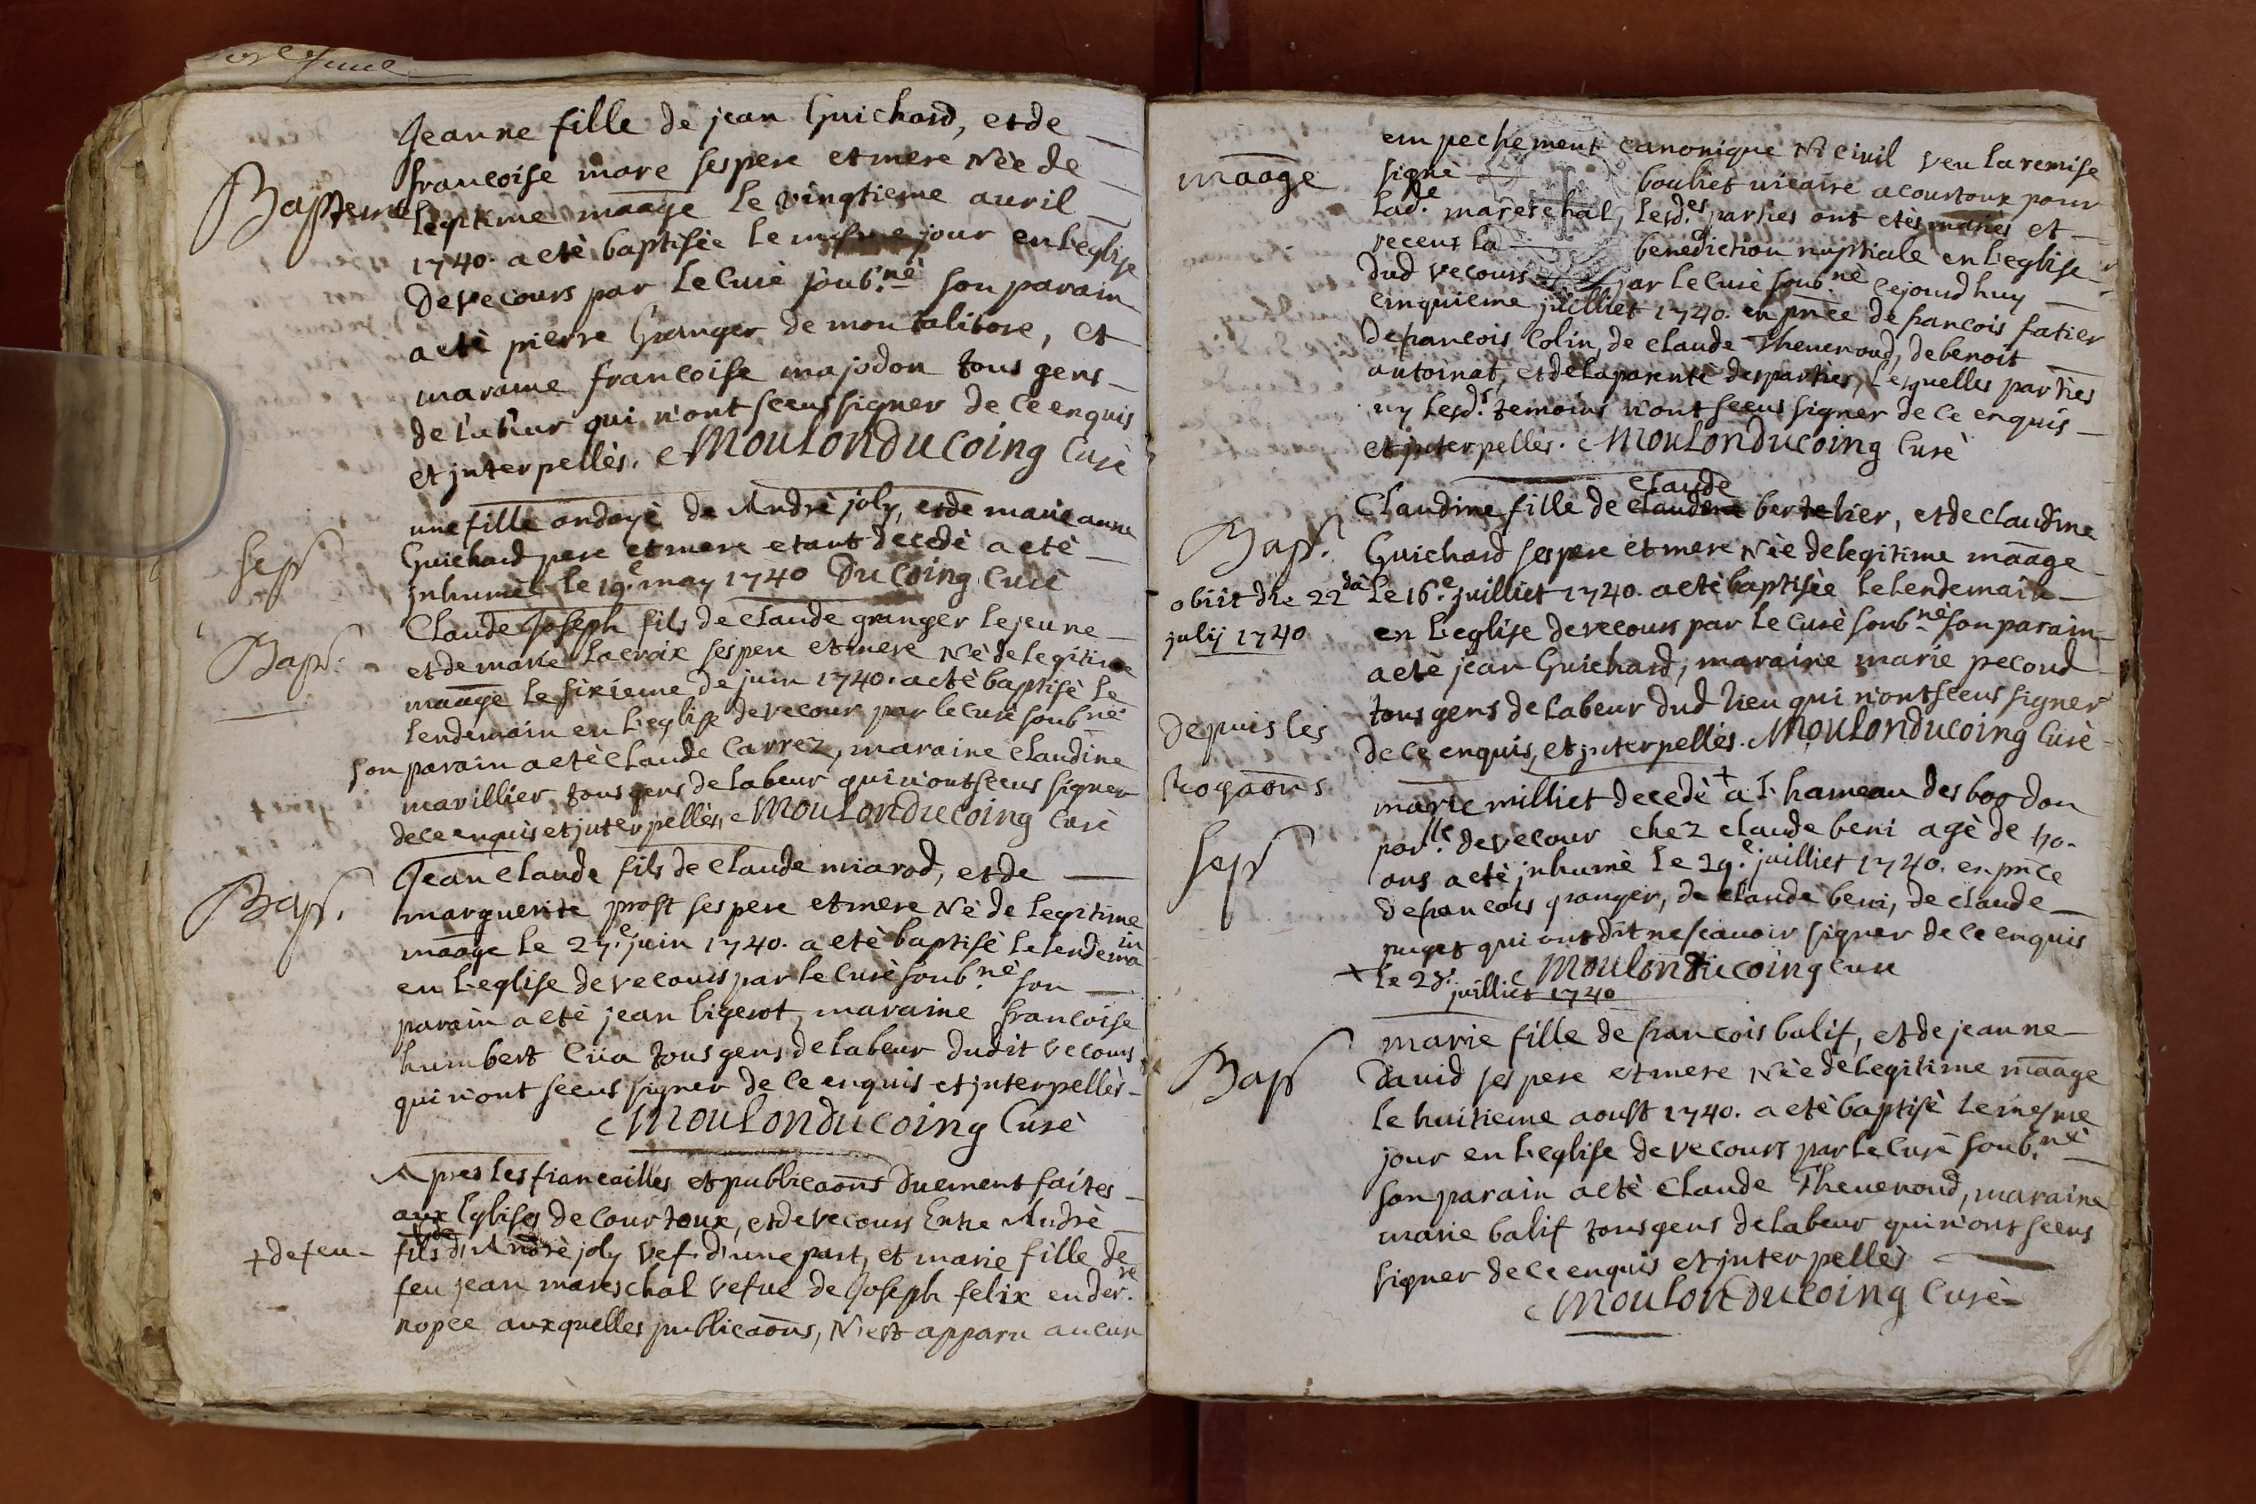 Jeanne fille de jean Guichard, et de
francoise mare ses pere et mere Neè de
Bapteme
legitime maage le vingtieme auril
1740. a etè baptiseè le mesme jour en leglise
de vecours par le Curè soub.nè son parain
a etè pierre Granger de montalibore, et
maraine francoise majodon tous gens
de labeur qui n'ont sceus signer de ce enquis
et jnterpellès. Moulonducoing Curè
une fille ondoyè de Andrè joly, et de marie anne
Guichard pere et mere etant decedè a etè
sep
jnhumeè le 19.e may 1740 Ducoing Curè
Claude Joseph fils de claude granger le jeune
Bap.
et de marie Lacroix ses pere et mere Nè de legitime
maage le sixieme de juin 1740. a etè baptisè le
lendemain en l'eglise de vecour par le curè soub nè
son parain a etè claude Carrez, maraine claudine
marillier, tous gens de labeur qui n'ont sceus signer
de ce enquis et jnterpellès, Moulonducoing Curè
Jean claude fils de claude miarod, et de
Bap.
marguerite prost ses pere et mere Nè de legitime
maage le 27.e juin 1740. a etè baptisè le lendemain
en l'eglise de vecours par le Curè soub.nè son
parain a etè jean ligerot, maraine francoise
humbert tous gens de labeur dudit vecours
qui n'ont sceus signer de ce enquis et jnterpellès
Moulonducoing Curè
Apres les fiancailles et publicaons duement faites
aux Eglises de Courtoux, et de vecours Entre Andrè
+ de feu
fils d'Andrè joly vef d'une part, et marie fille de
feu jean mareschal vefue de Joseph felix en der.re
nopce auxquelles publicaons, N'est apparu aucun
empechement canonique Ni civil veu la remise
maage
signè boulier vicaire a courtoux pour
lad.de mareschal, lesd.es parties ont etès mariès et
receus la benediction nuptiale en l'eglise
dud vecours par le Curè soub.nè cejourdhuy
cinquieme juilliet 1740. en pnce de francois fatier
de francois Colin, de claude Theuenoud, de benoit
antoinat, et de la parentè des parties, lesquelles parties
ny lesd.s temoins n'ont sceus signer de ce enquis
et jnterpellès. Moulonducoing Curè
claude
Claudine fille de bertelier, et de claudine
Bap.
Guichard ses pere et mere Neè de legitime maage
obiit die 22da
le 16.e juilliet 1740. a etè baptiseè le lendemain
julij 1740
en l'eglise de vecours par le Curè soub nè son parain
a etè jean Guichard, maraine marie pecoud
tous gens de labeur dud lieu qui n'ont sceus signer
depuis les
de ce enquis, et jnterpellès. Moulonducoing Curè
Rogaons
marie milliet decedè + a l'hameau des bordon
par.lle de vecour chez claude beni agè de 40.
sep
ans a etè jnhumè le 29.e juilliet 1740. en pnce
de francois granger, de claude beni, de claude
puget qui ont dit ne scauoir signer de ce enquis
Moulonducoing Cure
+ le 28. juilliet 1740
marie fille de francois balif, et de jeanne
Bap
David ses pere et mere Neè de legitime maage
le huitieme aoust 1740. a etè baptisè le mesme
jour en l'eglise de vecours par le Curè soub.nè
son parain a etè claude Theuenoud, maraine
marie balif tous gens de labeur qui n'ont sceus
signer de ce enquis et jnterpellès
Moulonducoing Curè